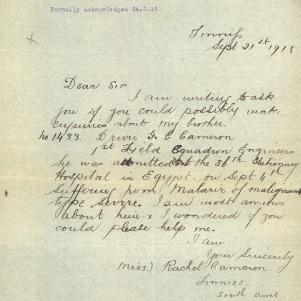 Formally acknowledged 24.9.18
Sept 21st 1918
Dear Sir
I am writing to ask
you if you could possibly make
Enquiries about my brother
No 1433. Driver J. C Cameron
1st Field Squadron Engineers
he was admitted to the 36th Stationary
Hospital in Egypt on Sept 4th
Suffering from Malaria of malignant
type severe. I am most anxious
about him & I wondered if you
could please help me.
I am
Your Sincerely
Miss) Rachel Cameron
South Aust